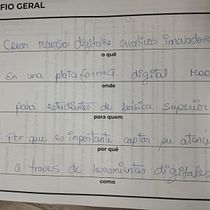 FIO GERAL
Crear recursos digitales creativos inovadores
o quê
En una plataforma digital Moo
onde
para estudiantes de básica superior
para quem
Por que es importante captar su atenc
por quê
a traves de herramientas digitales
como